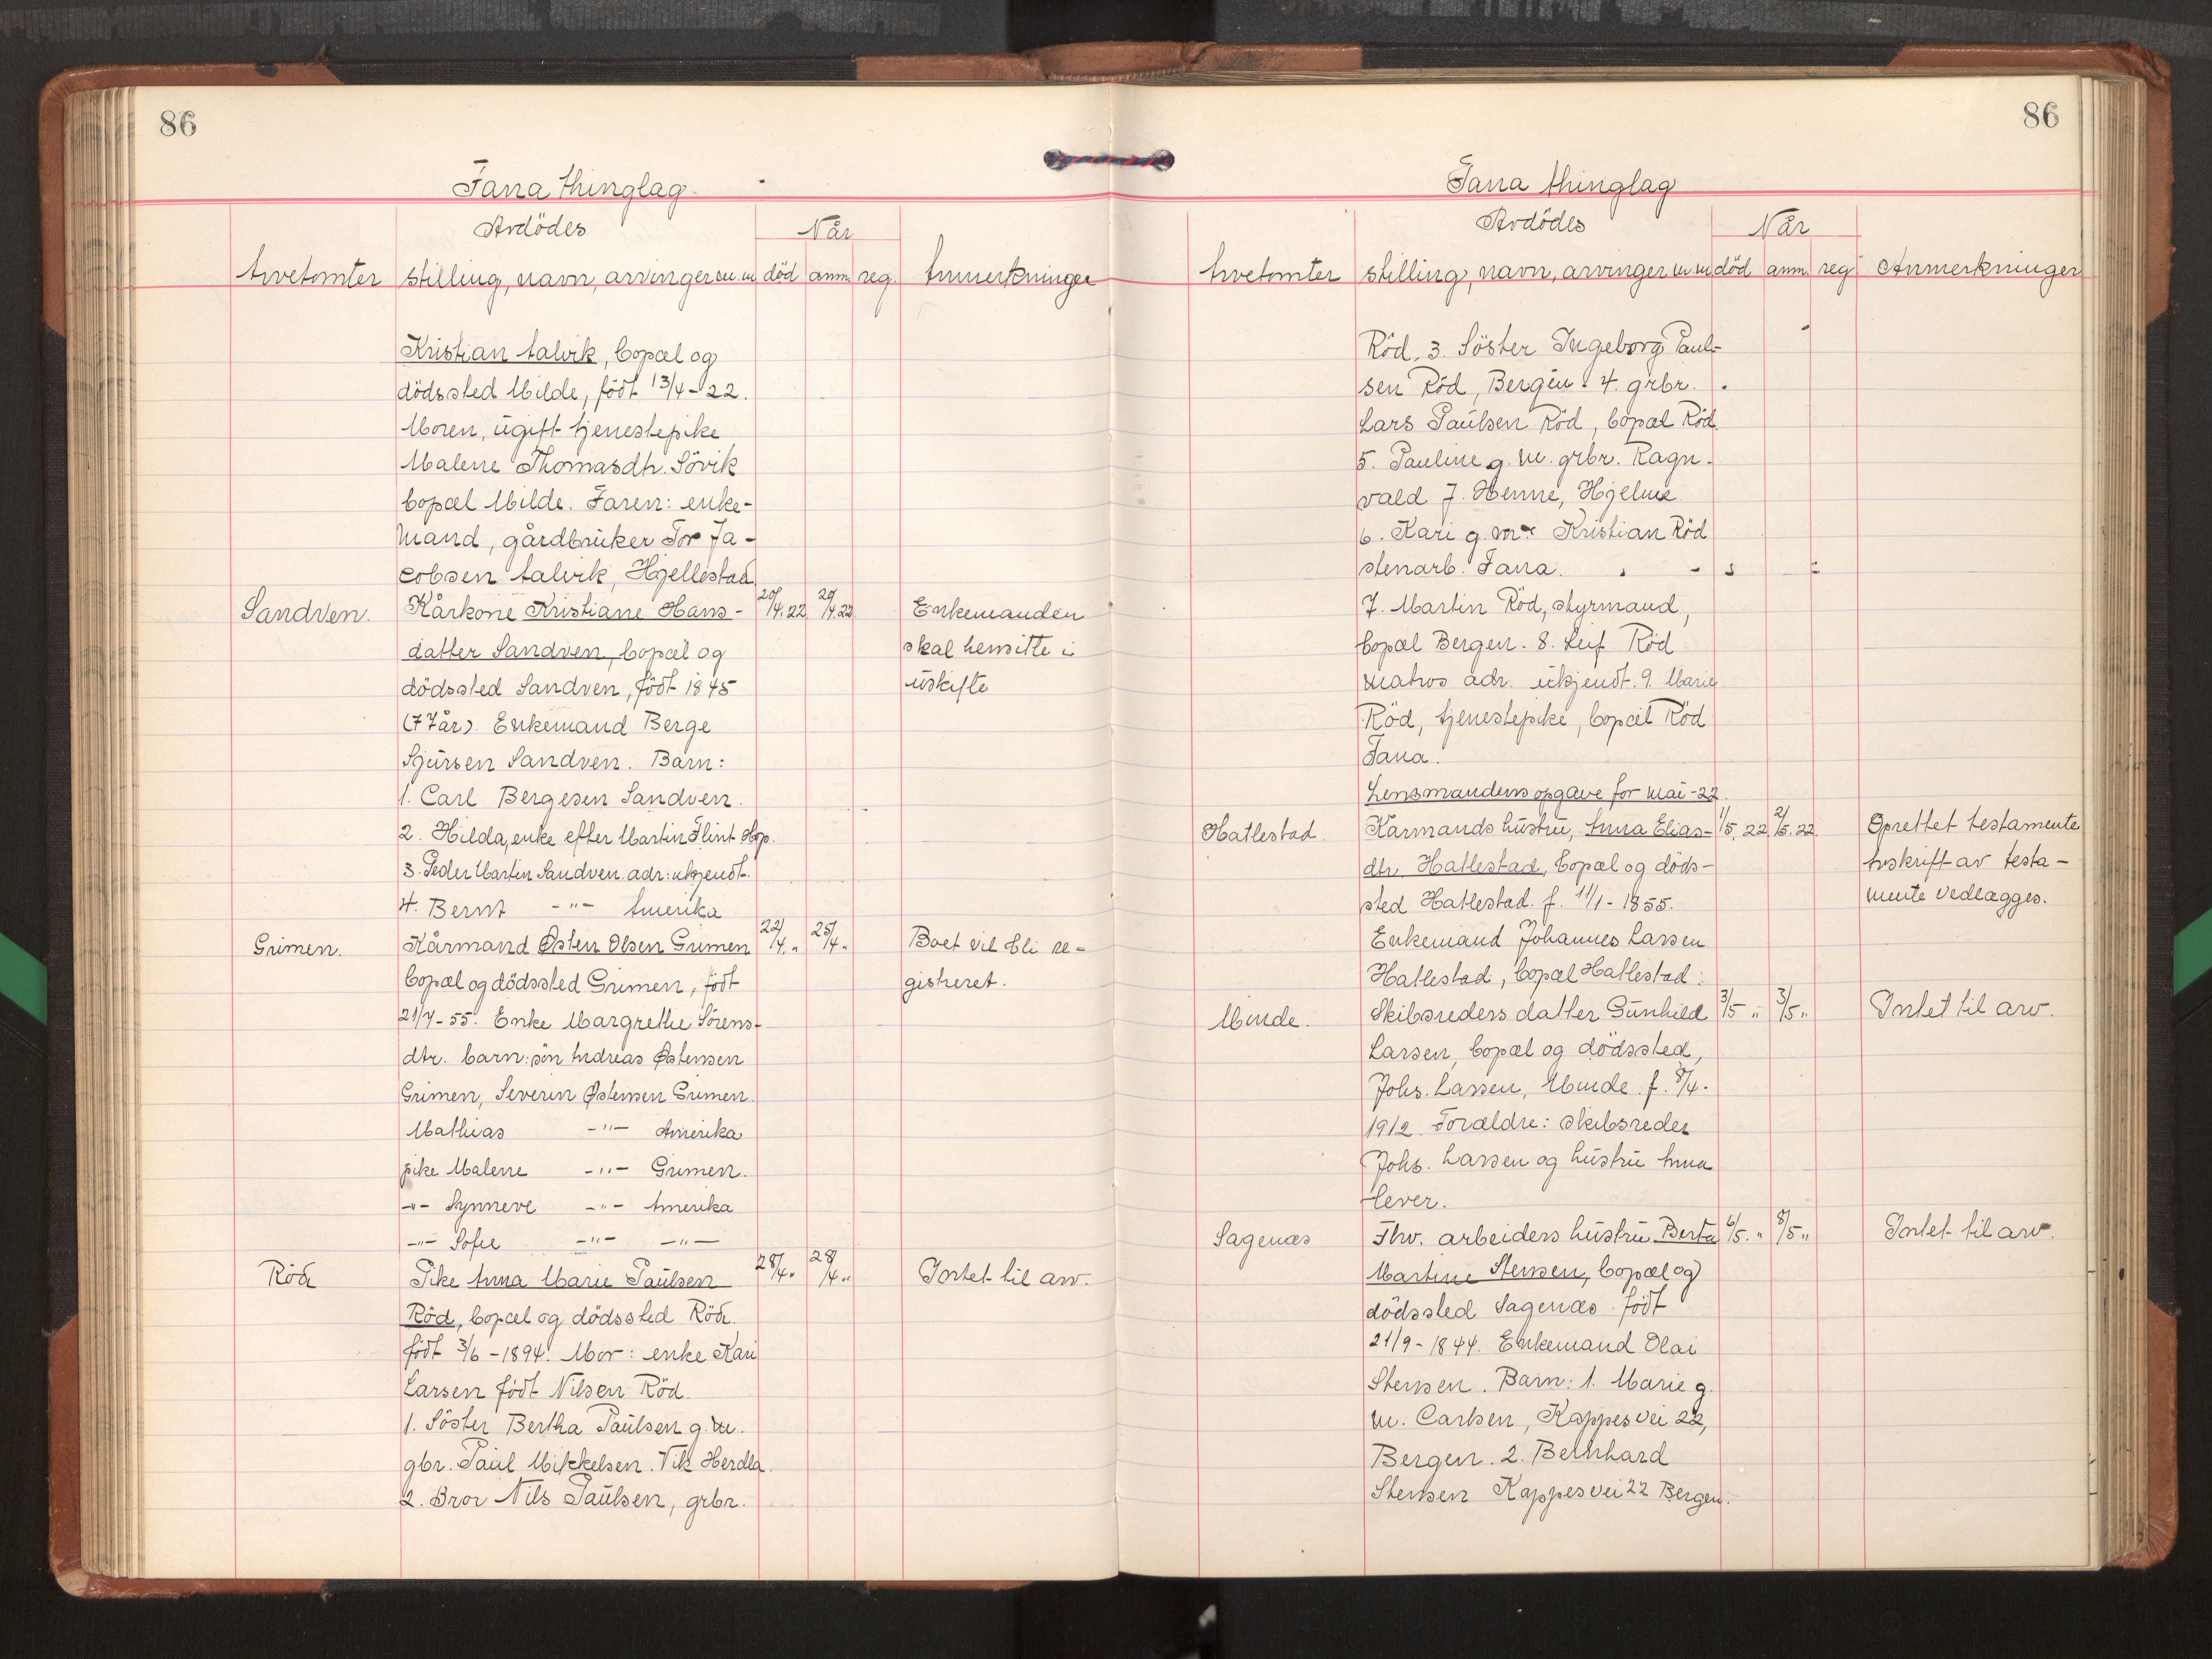 86
Fana thinglag
Avdödes
Når
Arvetomter stilling, navn, arvinger m.m død anm. reg. Anmerkninger
Kristian Aalvik, bopæl og
dödssted Milde, födt 13/4-22.
Moren, ugift tjenestepike
Malene Thomasdtr. Sövik
bopæl Milde. Faren: enke-
mand, gårdbruker Tor Ja-
cobsen Aalvik, Hjellestad
Sandven. Kårkone Kristiane Hans- 20/4.22 20/4.22 Enkemanden
datter Sandven, bopæl og skal hensitte i
dödssted Sandven, födt 1845 uskifte
(77år). Enkemand Berge
Sjursen Sandven. Barn:
1. Carl Bergesen Sandven.
2. Hilda, enke efter Martin Flint Hop.
3. Peder Martin Sandven. adr: ukjendt.
4. Bernt -"- Amerika
Grimen. Kårmand Østen Olsen Grimen 22/4 " 25/4 " Boet vil bli re-
bopæl og dödssted Grimen, födt gistreret.
21/7-55. Enke Margrethe Sörens-
dtr. barn: sön Andreas Østensen
Grimen, Severin Østensen Grimen.
Mathias -"- Amerika
pike Malene -"- Grimen.
-"- Synneve -"- Amerika
-"- Sofie -"- -"-
Röd Pike Anna Marie Paulsen 28/4 " 28/4 " Intet til arv.
Röd, bopæl og dödssted Röd.
födt 3/6-1894. Mor: enke Kari
Larsen födt Nilsen Röd.
1. Söster Bertha Paulsen g.m.
gbr. Paul Mikkelsen. Vik Herdla.
2. Bror Nils Paulsen, grbr.
86
Fana thinglag
Avdödes
Når
Arvetomter stilling, navn, arvinger m m död anm. reg Anmerkninger
Röd. 3. Söster Ingeborg Paul-
sen Röd, Bergen. 4. grbr.
Lars Paulsen Röd, bopæl Röd.
5. Pauline g. m. grbr. Ragn-
vald J. Henne, Hjelme.
6. Kari g. m. Kristian Röd
stenarb. Fana.
7. Martin Röd, styrmand,
bopæl Bergen. 8. Leif Röd
matros adr. ukjendt. 9. Marie
Röd, tjenestepike, bopæl Röd
Fana.
Lensmandens opgave for mai-22.
Hatlestad. Kårmands hustru, Anna Elias- 1/5.22 2/5.22. Oprettet testamente
dtr. Hatlestad, bopæl og döds- Avskrift av testa-
sted Hatlestad. f. 11/1-1855. mente vedlægges.
Enkemand Johannes Larsen
Hatlestad, bopæl Hatlestad.
Minde. Skibsreders datter Gunhild 3/5 " 3/5 " Intet til arv.
Larsen, bopæl og dödssted,
Johs. Larsen, Minde. f. 8/4.
1912. Forældre: skibsreder
Johs. Larsen og hustru Anna
lever.
Sagenæs Fhv. arbeiders hustru Berta 6/5. " 8/5 " Intet til arv.
Martine Stensen, bopæl og
dödssted Sagenæs. födt
21/9-1844. Enkemand Olai
Stensen. Barn: 1. Marie g.
m. Carlsen, Kappesvei 22,
Bergen. 2. Bernhard
Stensen Kappesvei 22 Bergen.